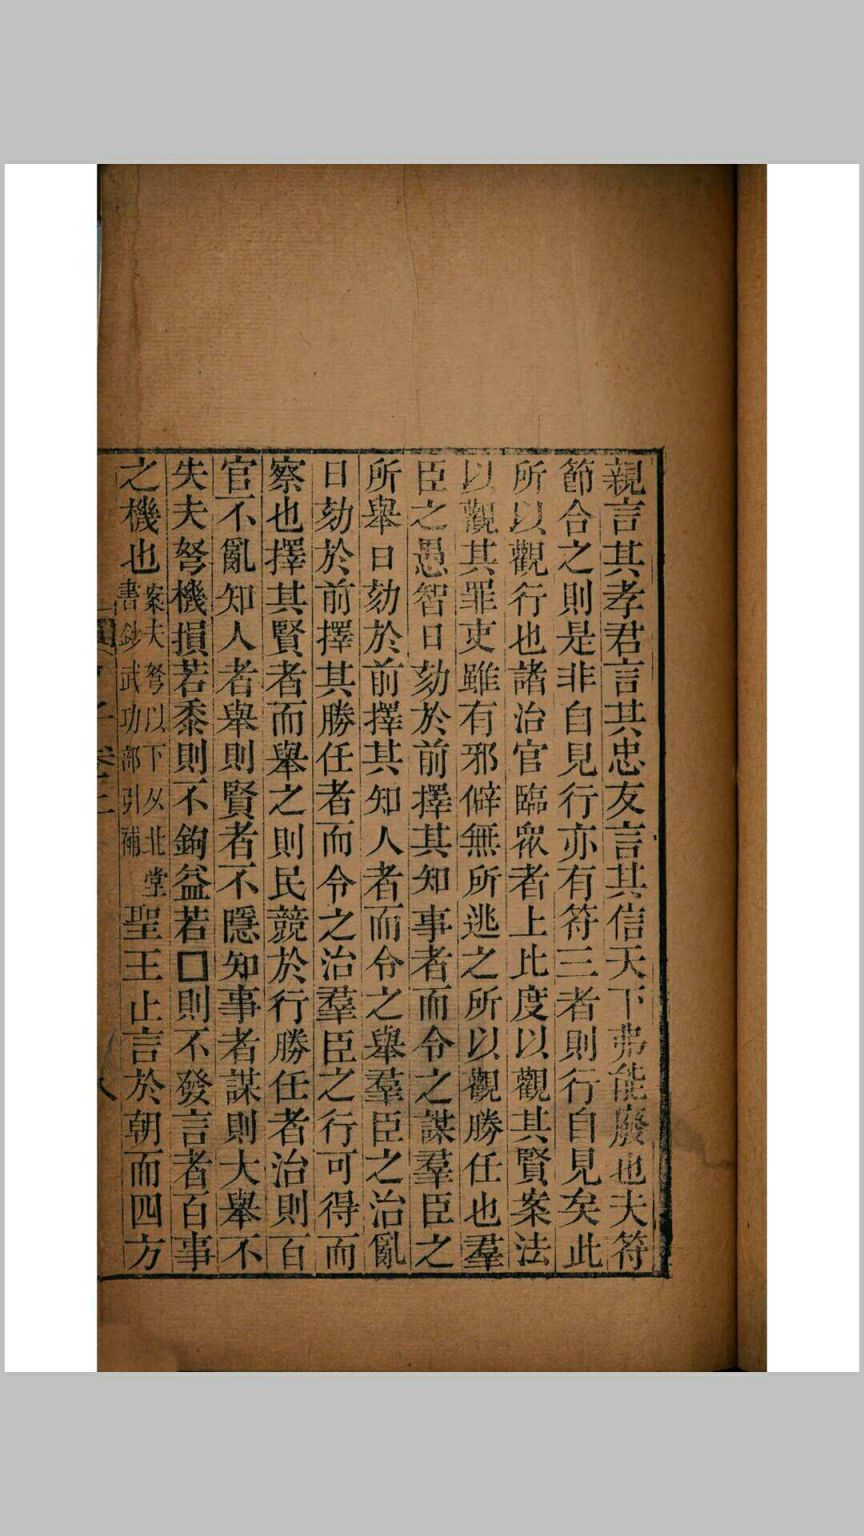 親言其孝君言其忠友言其信天下弗能廢也夫符
節合之則是非自見行亦有符三者則行自見矣此
所以觀行也諸治官臨衆者上比度以觀其賢案法
以觀其罪吏雖有邪僻無所逃之所以觀勝任也羣
臣之愚智日効於前擇其知事者而令之謀羣臣之
所舉日効於前擇其知人者而令之舉羣臣之治亂
日効於前擇其勝任者而令之治羣臣之行可得而
察也擇其賢者而舉之則民競於行勝任者治則百
官不亂知人者舉則賢者不隱知事者謀則大舉不
失夫弩機損若黍則不鉤益若□則不發言者百事
之機也
案夫弩以下又北堂
書鈔武功部引補
聖王止言於朝而四方
子卷上
八